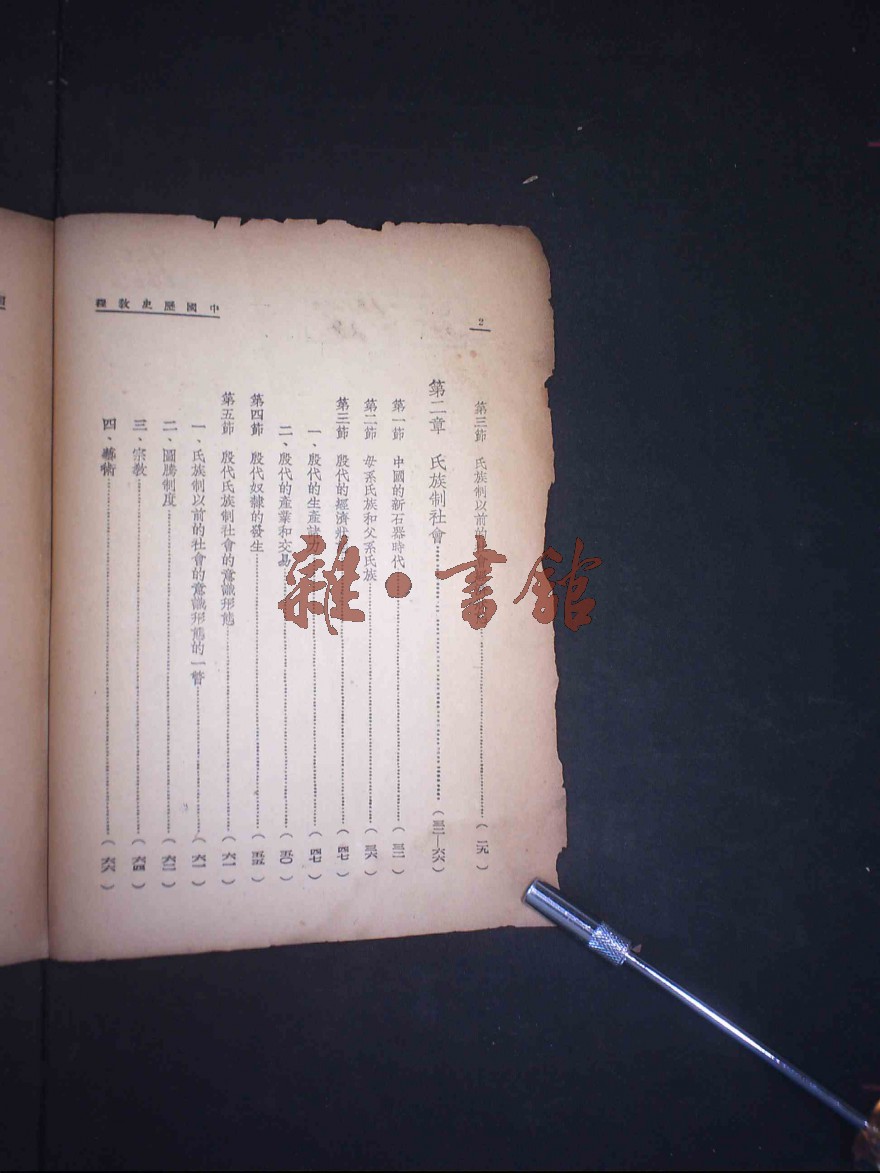 中國歷史教程
2
第三節 氏族制以前的……（二九）
第二章 氏族制社會……（三一—六六）
第一節 中國的新石器時代……（三一）
第二節 母系氏族和父系氏族……（三六）
第三節 殷代的經濟……（四七）
一、殷代的生產諸力……（四七）
二、殷代的產業和交易……（五〇）
第四節 殷代奴隸的發生……（五五）
第五節 殷代氏族制社會的意識形態……（六一）
一、氏族制以前的社會的意識形態的一瞥……（六一）
二、圖騰制度……（六二）
三、宗教……（六四）
四、藝術……（六六）
雜·書館